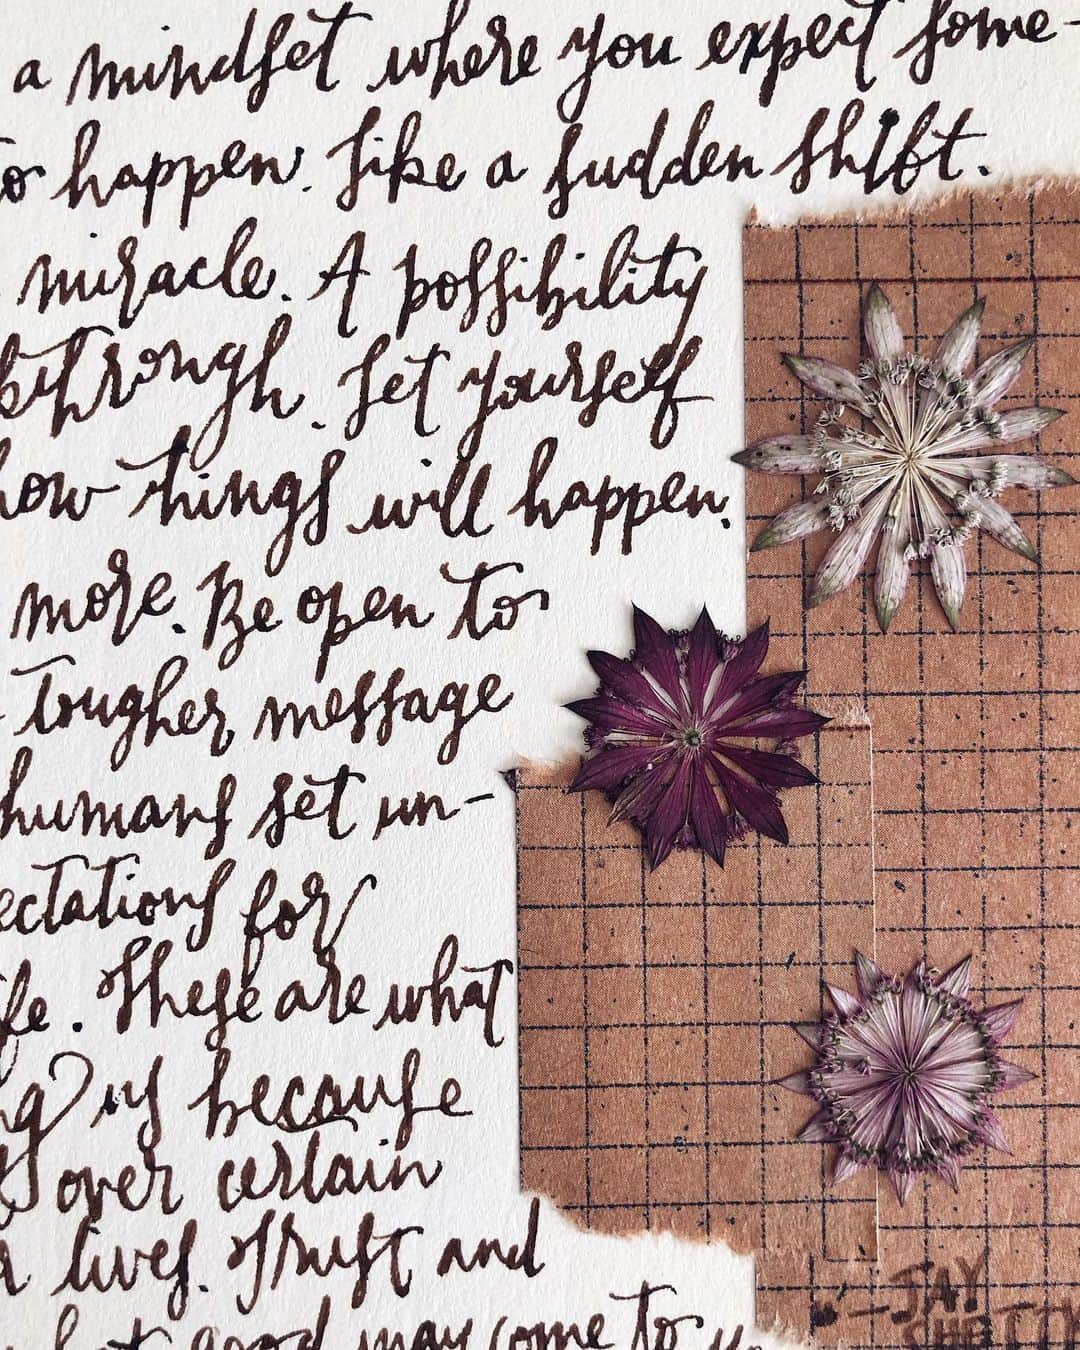 a mindset where you expect some-
to happen. Like a sudden shift.
miracle. A possibility
through. Let yourself
how things will happen.
more. Be open to
tougher message
humans set un-
ectations for
ife. These are what
ng us because
over certain
lives. Trust and
good may come to
- JAY
SHETTY